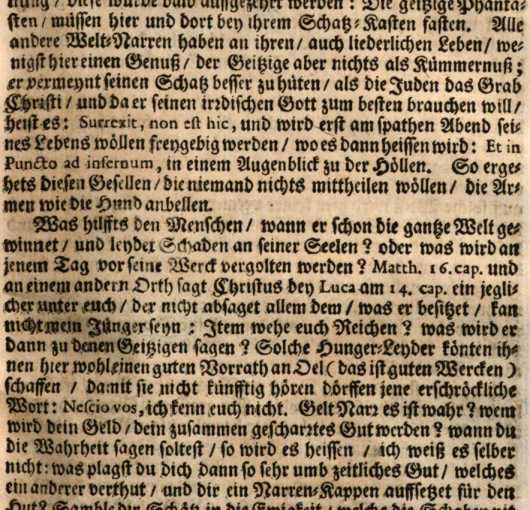 nung / diese wurde bald ausgezehrt werden: Die geitzige Phanta-
sten / müssen hier und dort bey ihrem Schatz-Kasten fasten. Alle
andere Welt-Narren haben an ihren / auch liederlichen Leben / we-
nigst hier einen Genuß / der Geitzige aber nichts als Kümmernuß:
er vermeynt seinen Schatz besser zu hüten / als die Juden das Grab
Christi / und da er seinen irrdischen Gott zum besten brauchen will /
heist es: Surrexit, non est hic, und wird erst am spathen Abend sei-
nes Lebens wöllen freygebig werden / wo es dann heissen wird: Et in
Puncto ad infernum, in einem Augenblick zu der Höllen. So erge-
hets diesen Gesellen / die niemand nichts mittheilen wöllen / die Ar-
men wie die Hund anbellen.
Was hilffts den Menschen / wann er schon die gantze Welt ge-
winnet / und leydet Schaden an seiner Seelen? oder was wird an
jenem Tag vor seine Werck vergolten werden? Matth. 16. cap. und
an einem andern Orth sagt Christus bey Luca am 14. cap. ein jegli-
cher unter euch / der nicht absaget allem dem / was er besitzet / kan
nicht mein Jünger seyn: Item wehe euch Reichen? was wird er
dann zu denen Geitzigen sagen? Solche Hunger-Leyder könten ih-
nen hier wohl einen guten Vorrath an Oel (das ist guten Wercken)
schaffen / damit sie nicht künfftig hören dörffen jene erschröckliche
Wort: Nescio vos, ich kenn euch nicht. Gelt Narr es ist wahr? wem
wird dein Geld / dein zusammen gescharrtes Gut werden? wann du
die Wahrheit sagen soltest / so wird es heissen / ich weiß es selber
nicht: was plagst du dich dann so sehr umb zeitliches Gut / welches
ein anderer verthut / und dir ein Narren-Kappen auffsetzet für den
Hut? Samble dir Schätz in die Ewigkeit / welche die Schaben nit